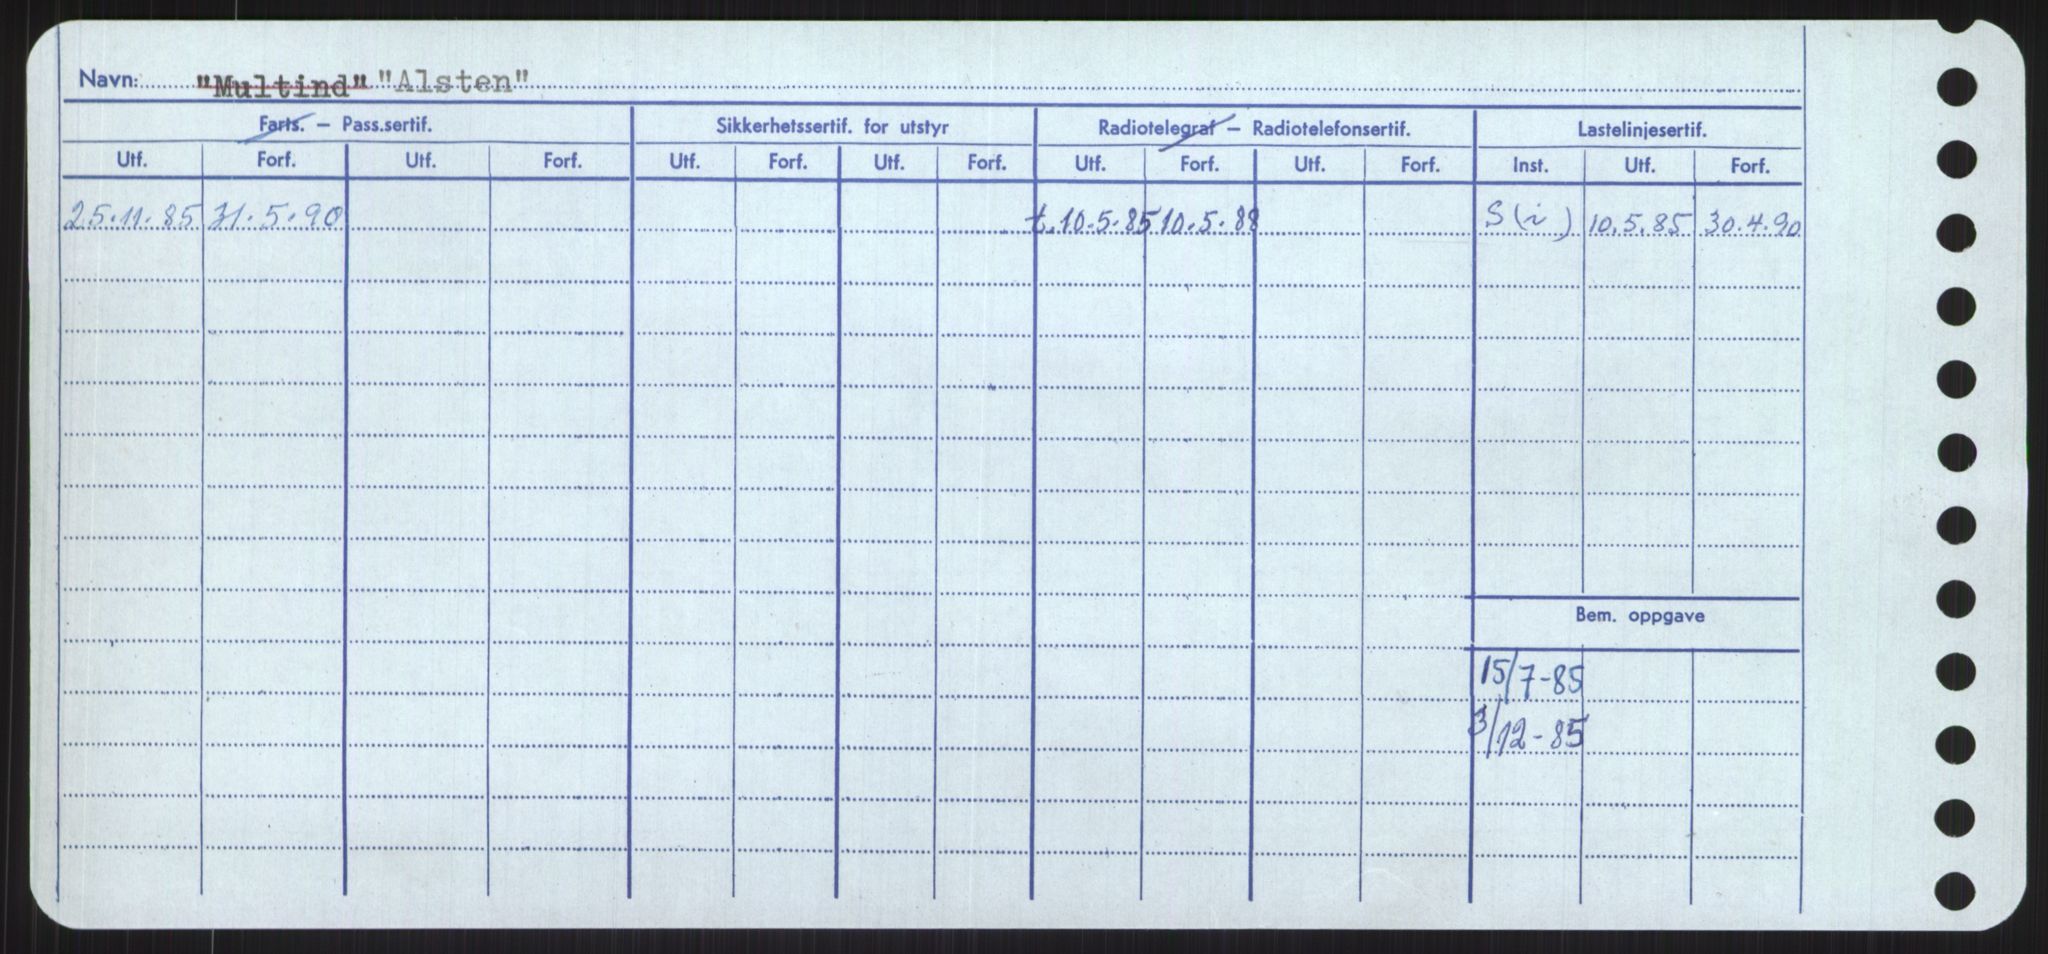 Navn: "Multind" "Alsten"
Farts. – Pass.sertif. Sikkerhetssertif. for utstyr Radiotelegraf – Radiotelefonsertif. Lastelinjesertif.
Utf. Forf. Utf. Forf. Utf. Forf. Utf. Forf. Utf. Forf. Utf. Forf. Inst. Utf. Forf.
25.11.85 31.5.90 t.10.5.85 10.5.88 S(i) 10.5.85 30.4.90
Bem. oppgave
15/7-85
3/12-85